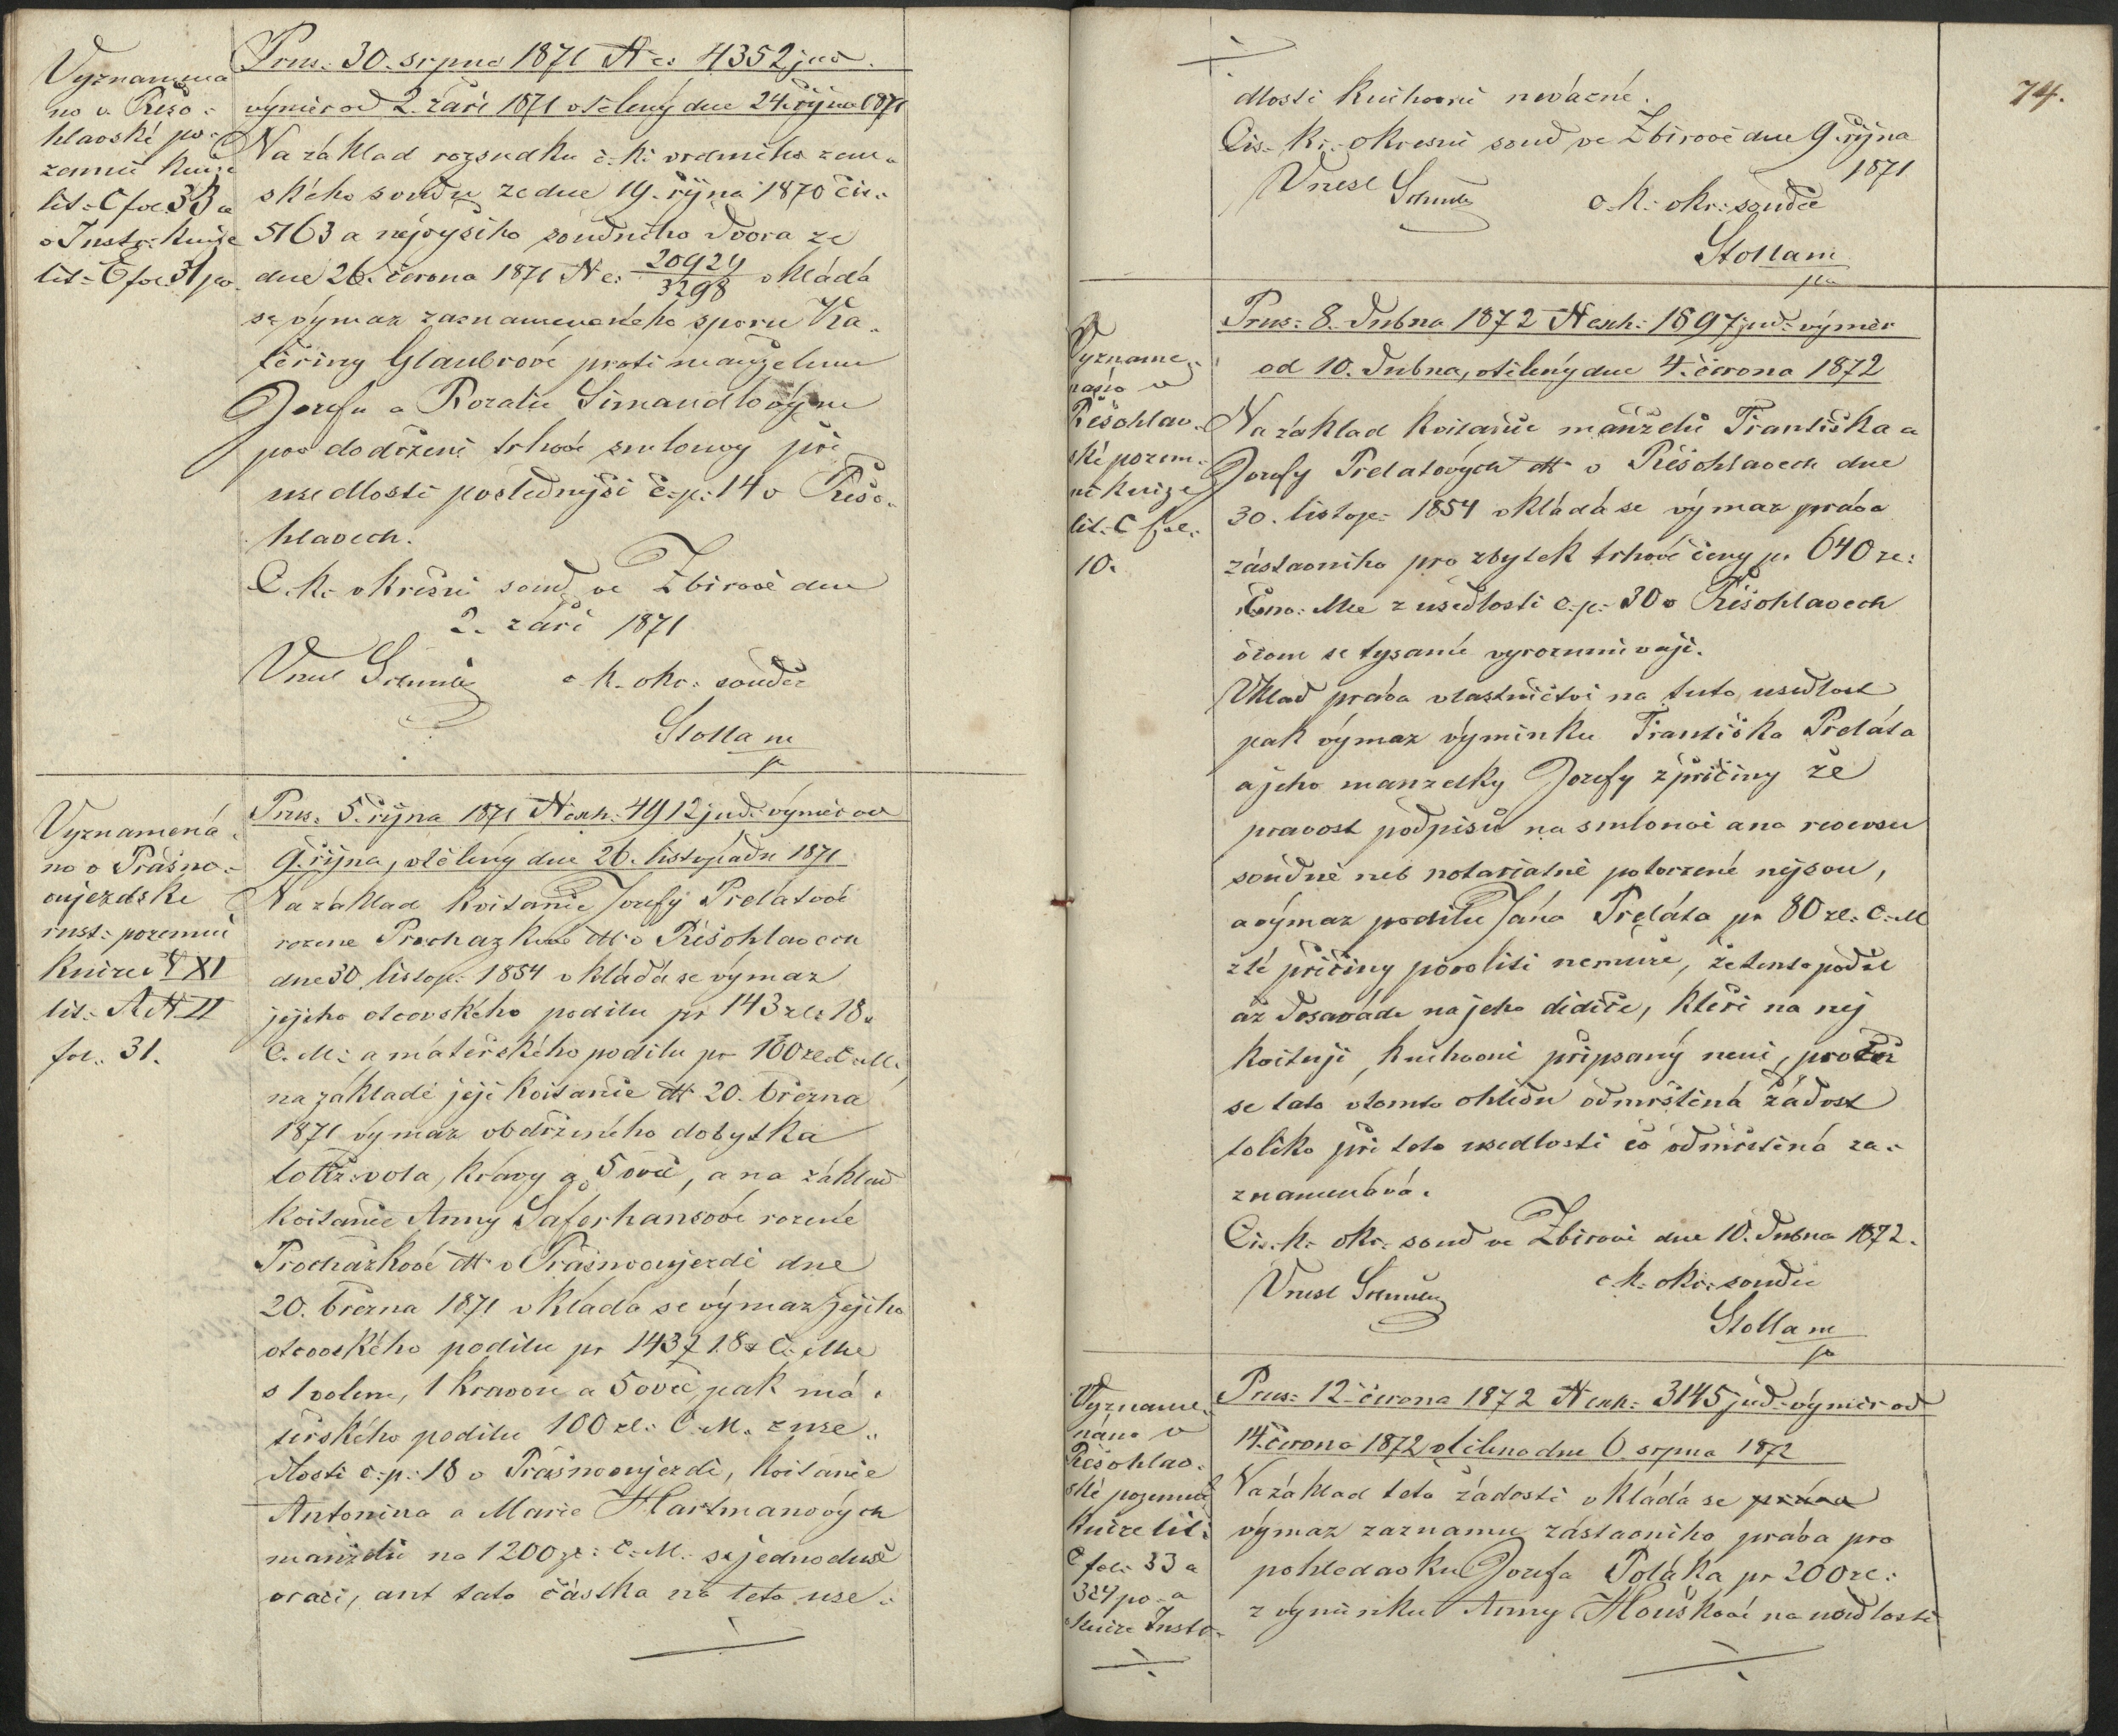 Vyznamena
no v Řešo-
hlavské po-
zemní knize
lit. C fol. 33 a
v Instr. knize
lit. E fol. 31 po.
Prus. 30. srpna 1871 N e. 4352 jud.
výměr od 2. září 1871 vtělený dne 24. října 1871
Na základ rozsudku c. k. vrchního zem-
ského soudu ze dne 19. října 1870 čis.
5163 a nejvyšího soudního dvora ze
dne 26. června 1871 N e. 20924/3298 vkládá
se výmaz zaznamenaného sporu Ka-
teřiny Glaubrové proti manželům
Jozefu a Rozalii Šimandlovým
pro dodržení trhové smlouvy při
usedlosti poslednější č. p. 14 v Řešo-
hlavech.
C. k. okresní soud ve Zbirově dne
2. září 1871
Vnesl c. k. okr. soudce
Stolla m
p
Vyznamená-
no v Prašno-
oujezdske
rust. pozemní
knize č XI
lit. A N II
fol. 31.
Prus. 5. října 1871 N exh. 4912 jud. výměr od
9. října, vtělený dne 26. listopadu 1871
Na základ kvitancie Jozefy Prelátové
rozene Prochazkove dtt v Řešohlavech
dne 30. listop. 1854 vkládá se výmaz
jejího otcovského podílu pr 143 zl. 18
C. M. a mateřského podílu pr 100 zl. C. M.,
na základě její kvitancie dtt 20. března
1871 výmaz obdrženého dobytka
totiž vola, krávy a 5 ovcí, a na základ
kvitancie Anny Šaferhansové rozené
Procházkové dtt v Prašnooujezdě dne
20. března 1871 vkládá se výmaz jejího
otcovského podílu pr 143 f 18 x C. Mce
s 1 volem, 1 kravou a 5 ovcí, pak má-
teřského podílu 100 zl. C. M. z use-
dlosti č. p. 18 v Prašnooujezdě, kvitancie
Antonina a Marie Hartmanových
manželů na 1200 zl. C. M. se jednoduše
vrací, ant tato částka na této use-
74.
dlosti knihovně nevázne.
Cis. kr. okresní soud ve Zbirově dne 9. října
1871
Vnesl c. k. okr. soudce
Stolla m
pa
Vyzname-
náno v
Řešohlav-
ské pozem-
ní knize
lit. C fol.
10.
Prus. 8. dubna 1872 N exh. 1697 jud. výměr
od 10. dubna, vtělený dne 4. června 1872
Na základ kvitancie manželů Františka a
Jozefy Prelatových dtt v Řešohlavech dne
30. listop. 1854 vkládá se výmaz práva
zástavního pro zbytek trhové ceny pr 640 zl.
Mce z usedlosti č. p. 30 v Řešohlavech
o čem se tysamí vyrozumívají.
Vklad práva vlastnictví na tuto usedlost
pak výmaz výminku Františka Preláta
a jeho manzelky Jozefy z příčiny že
pravost podpisů na smlouvě ana reversu
soudně neb notarialně potvrzené nejsou,
a výmaz podílu Jána Preláta pr 80 zl. C. M
z té příčiny povoliti nemůže, že tento podíl
až dosaváde na jeho dědiče, kteří na něj
kvitují, knihovně připsaný není, pročež
se tato v tomto ohledu odmrštěná žádost
toliko při této usedlosti co odmrštěná za-
znamenává.
Cis. k. okr. soud ve Zbirově dne 10. dubna 1872.
Vnesl c. k. okr. soudce
Stolla m
pa
Vyzname-
náno v
Řešohlav-
ské pozemní
knize lit.
C fol. 33 a
324 po a
knize Instr.
Prus. 12. června 1872 N exh. 3145 jud. výměr od
14. června 1872 vtěleno dne 6. srpna 1872
Na základ této žádosti vkládá se práva
výmaz zaznamu zástavního práva pro
pohledavku Jozefa Poláka pr 200 zl.
z výminku Anny Houškové na usedlosti